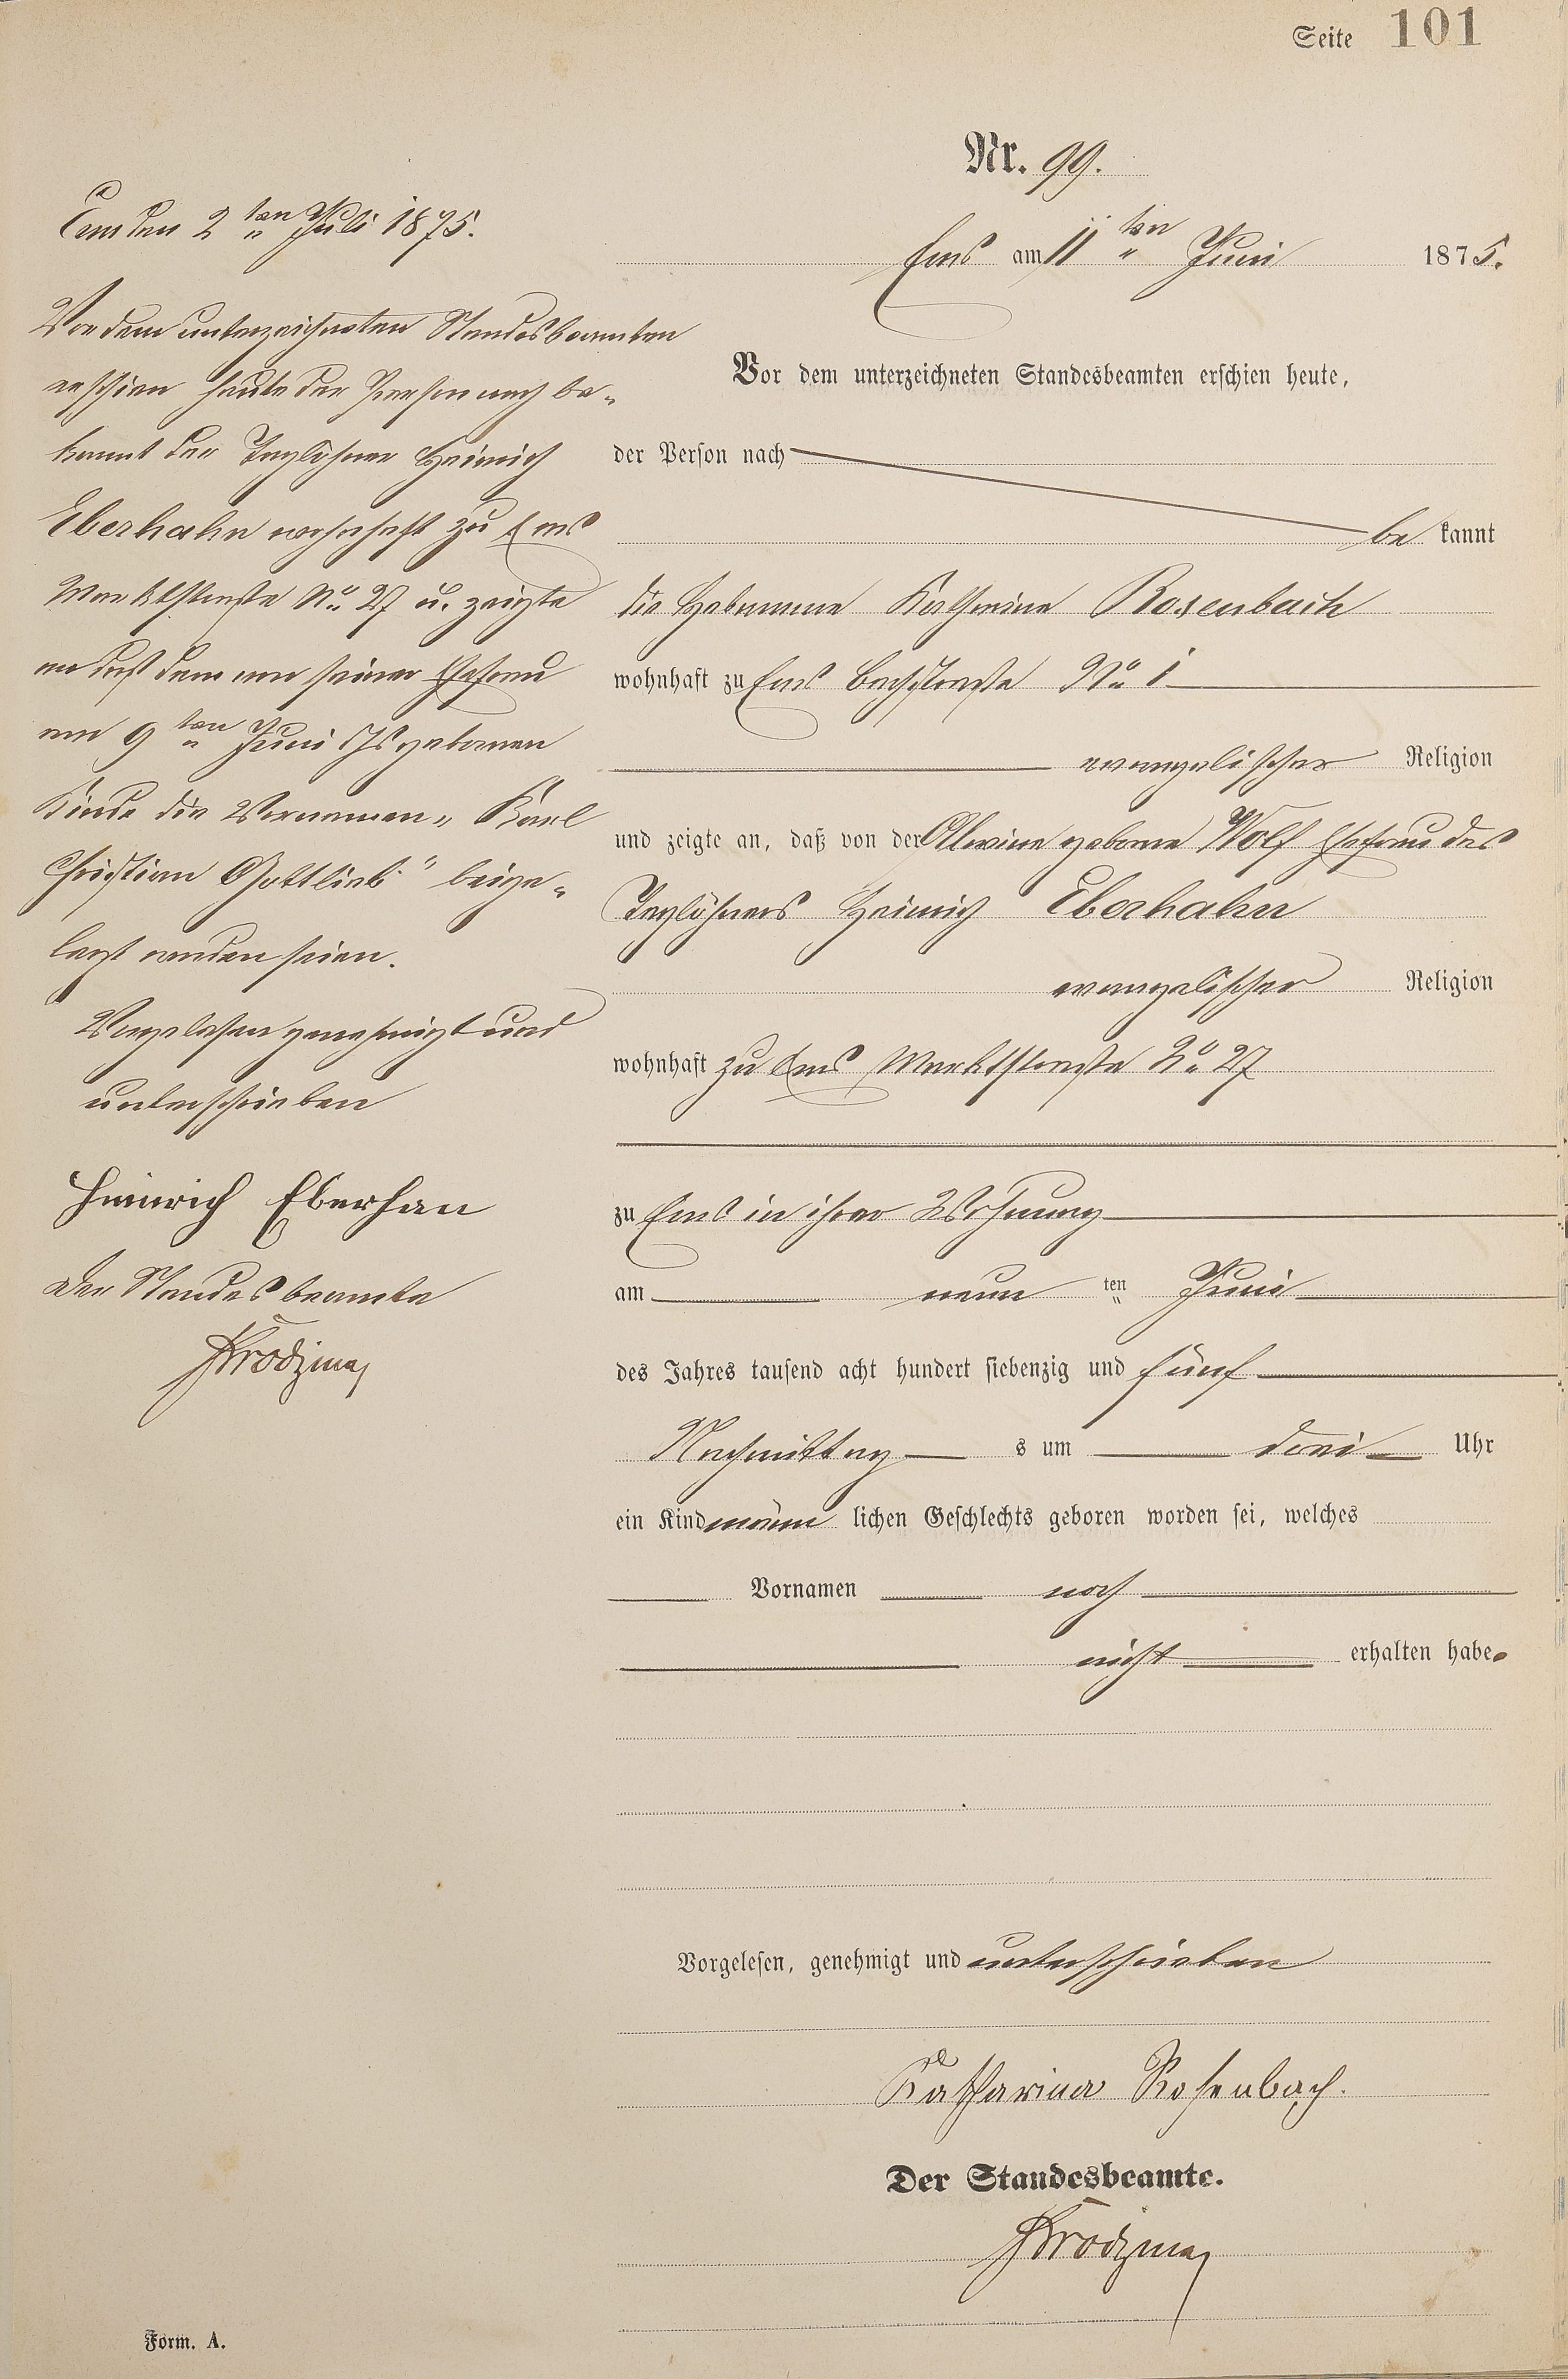 Seite 101
Nr. 99.
Ems am 11ten Juni 1875.
Vor dem unterzeichneten Standesbeamten erschien heute,
der Person nach
bekannt
die Hebamme Katharina Rosenbach
wohnhaft zu Ems Bachstraße No 1
evangelischer Religion
und zeigte an, daß von der Alwine geborne Wolf Ehefrau des
Taglöhners Heinrich Eberhahn
evangelischer Religion
wohnhaft zu Ems Marktstraße No 27
zu Ems in ihrer Wohnung
am neun ten Juni
des Jahres tausend acht hundert siebenzig und fünf
Nachmittag s um drei Uhr
ein Kind männ lichen Geschlechts geboren worden sei, welches
Vornamen noch
nicht erhalten habe.
Vorgelesen, genehmigt und unterschrieben
Katharina Rosenbach.
Der Standesbeamte.
Ems den 2ten Juli 1875.
Vor dem unterzeichneten Standesbeamten
erschien heute der Person nach be-
kannt der Taglöhner Heinrich
Eberhahn wohnhaft zu Ems
Marktstraße No 27 u. zeigte
an daß dem von seiner Ehefrau
am 9ten Juni geborenen
Kinde die Vornamen „Karl
Christian Gottlieb" beige-
legt worden seien.
Vorgelesen genehmigt und
unterschrieben
Heinrich Eberhan
Der Standesbeamte
Form. A.